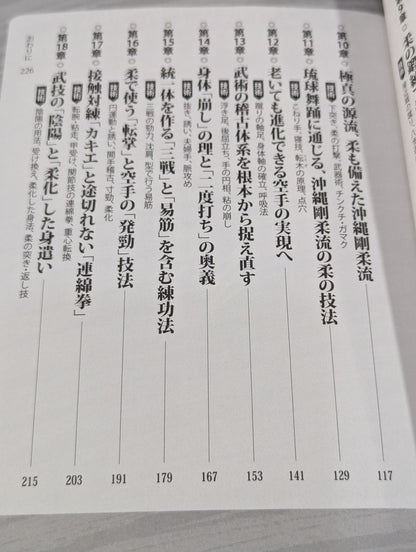 ◎第10章◎ 極真の源流、柔も備えた沖縄剛柔流 117
技術 上突き・柔の打撃、武器術、チンクチ・ガマク
◎第11章◎ 琉球舞踊に通じる 沖縄剛柔流の柔の技法 129
技術 こねり手、寝技、転木の原理、点穴
◎第12章◎ 老いても進化できる空手の実現へ 141
技術 蹴りの軸足、身体軸の確立、呼吸法
◎第13章◎ 武術の稽古体系を根本から捉え直す 153
技術 浮き足、後屈立ち、手の円相、粘の崩し
◎第14章◎ 身体「崩し」の理と「一度打ち」の奥義 167
技術 抜き、誘い、夫婦手、脈攻め
◎第15章◎ 統一体を作る「三戦」と「易筋」を含む練功法 179
技術 三戦の勁力、沈肩、型で行う易筋
◎第16章◎ 柔で使う「転掌」と空手の「発勁」技法 191
技術 円運動と誘い、関内と掃手、寸勁、柔化
◎第17章◎ 接触対練「カキエ」と途切れない「連綿拳」 203
技術 転腕・粘走、甲受け、関節技の連綿拳、重心転換
◎第18章◎ 武技の「陰陽」と「柔化」した身遣い 215
技術 陰陽の用法、受け換え、柔化した身法、柔の突き・返し技
おわりに 226